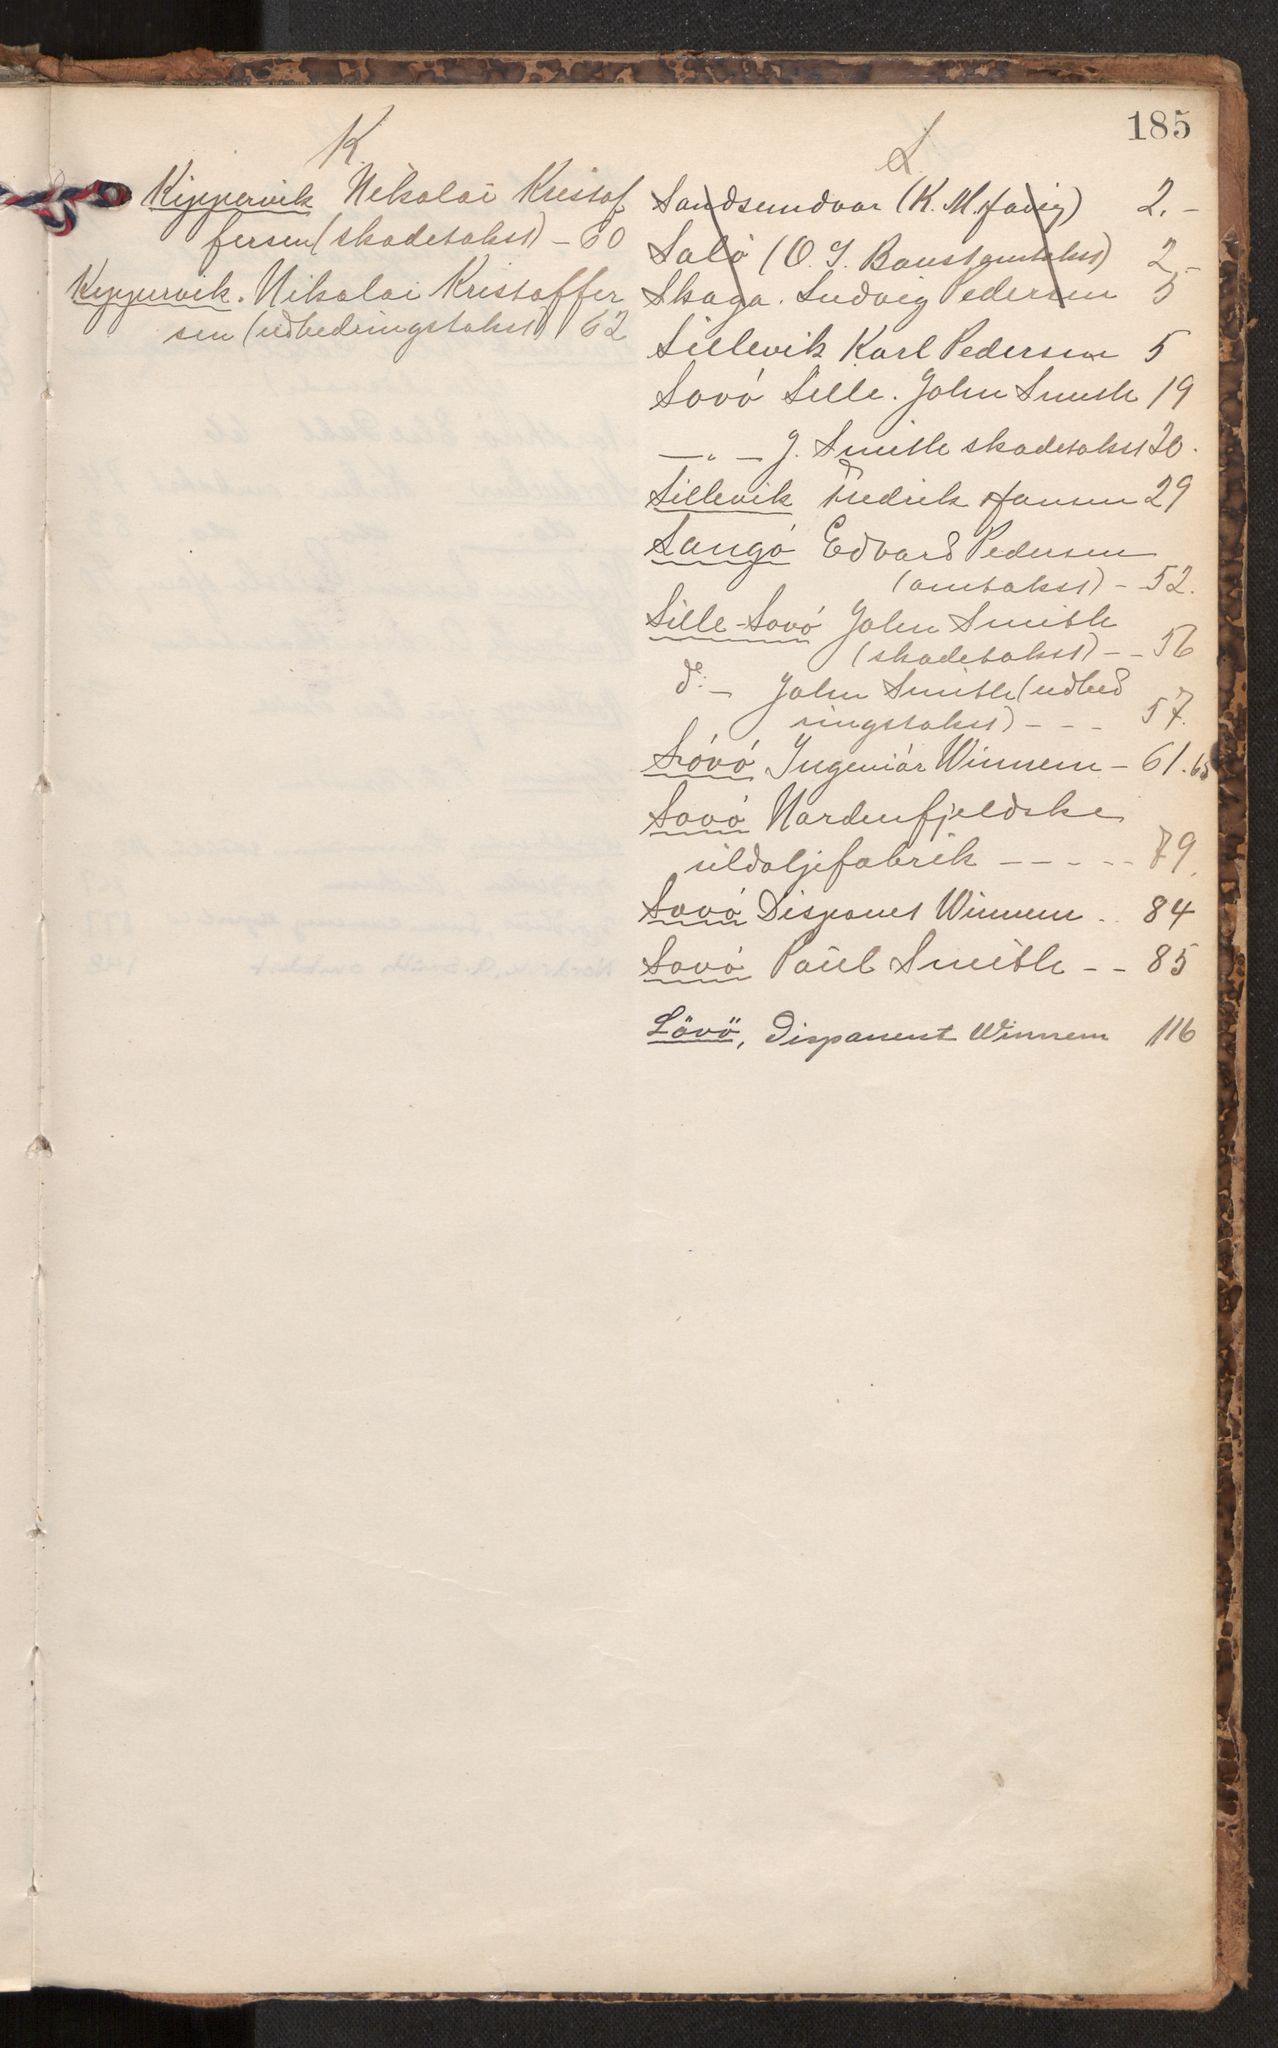 185
K.
Kippervik Nikolai Kristof
fersen (skadetakst) - 60
Kippervik. Nikolai Kristoffer
sen (udbedringstakst) 62
L.
Sandsundvær (K. M. Havig) 2.-
Salö (O. J. omtakst) 2.-
Skaga. Ludvig Pedersen 5
Lillevik Karl Pedersen 5
Lovö Lille. John Smith 19
—„— J. Smith skadetakst 20.
Lillevik Fredrik Hansen 29
Langö Edvard Pedersen
(omtakst) - 52.
Lille-Lovö John Smith
(skadetakst) - - 56
do - John Smith (udbed
ringstakst) - - - 57.
Lövö Ingeniör Winnem - 61. 65
Lovö Nordenfjeldske
sildoljefabrik - - - - - 79.
Lovö Disponet Winnem . 84
Lovö Paul Smith - - 85
Lövö, Disponent Winnem 116